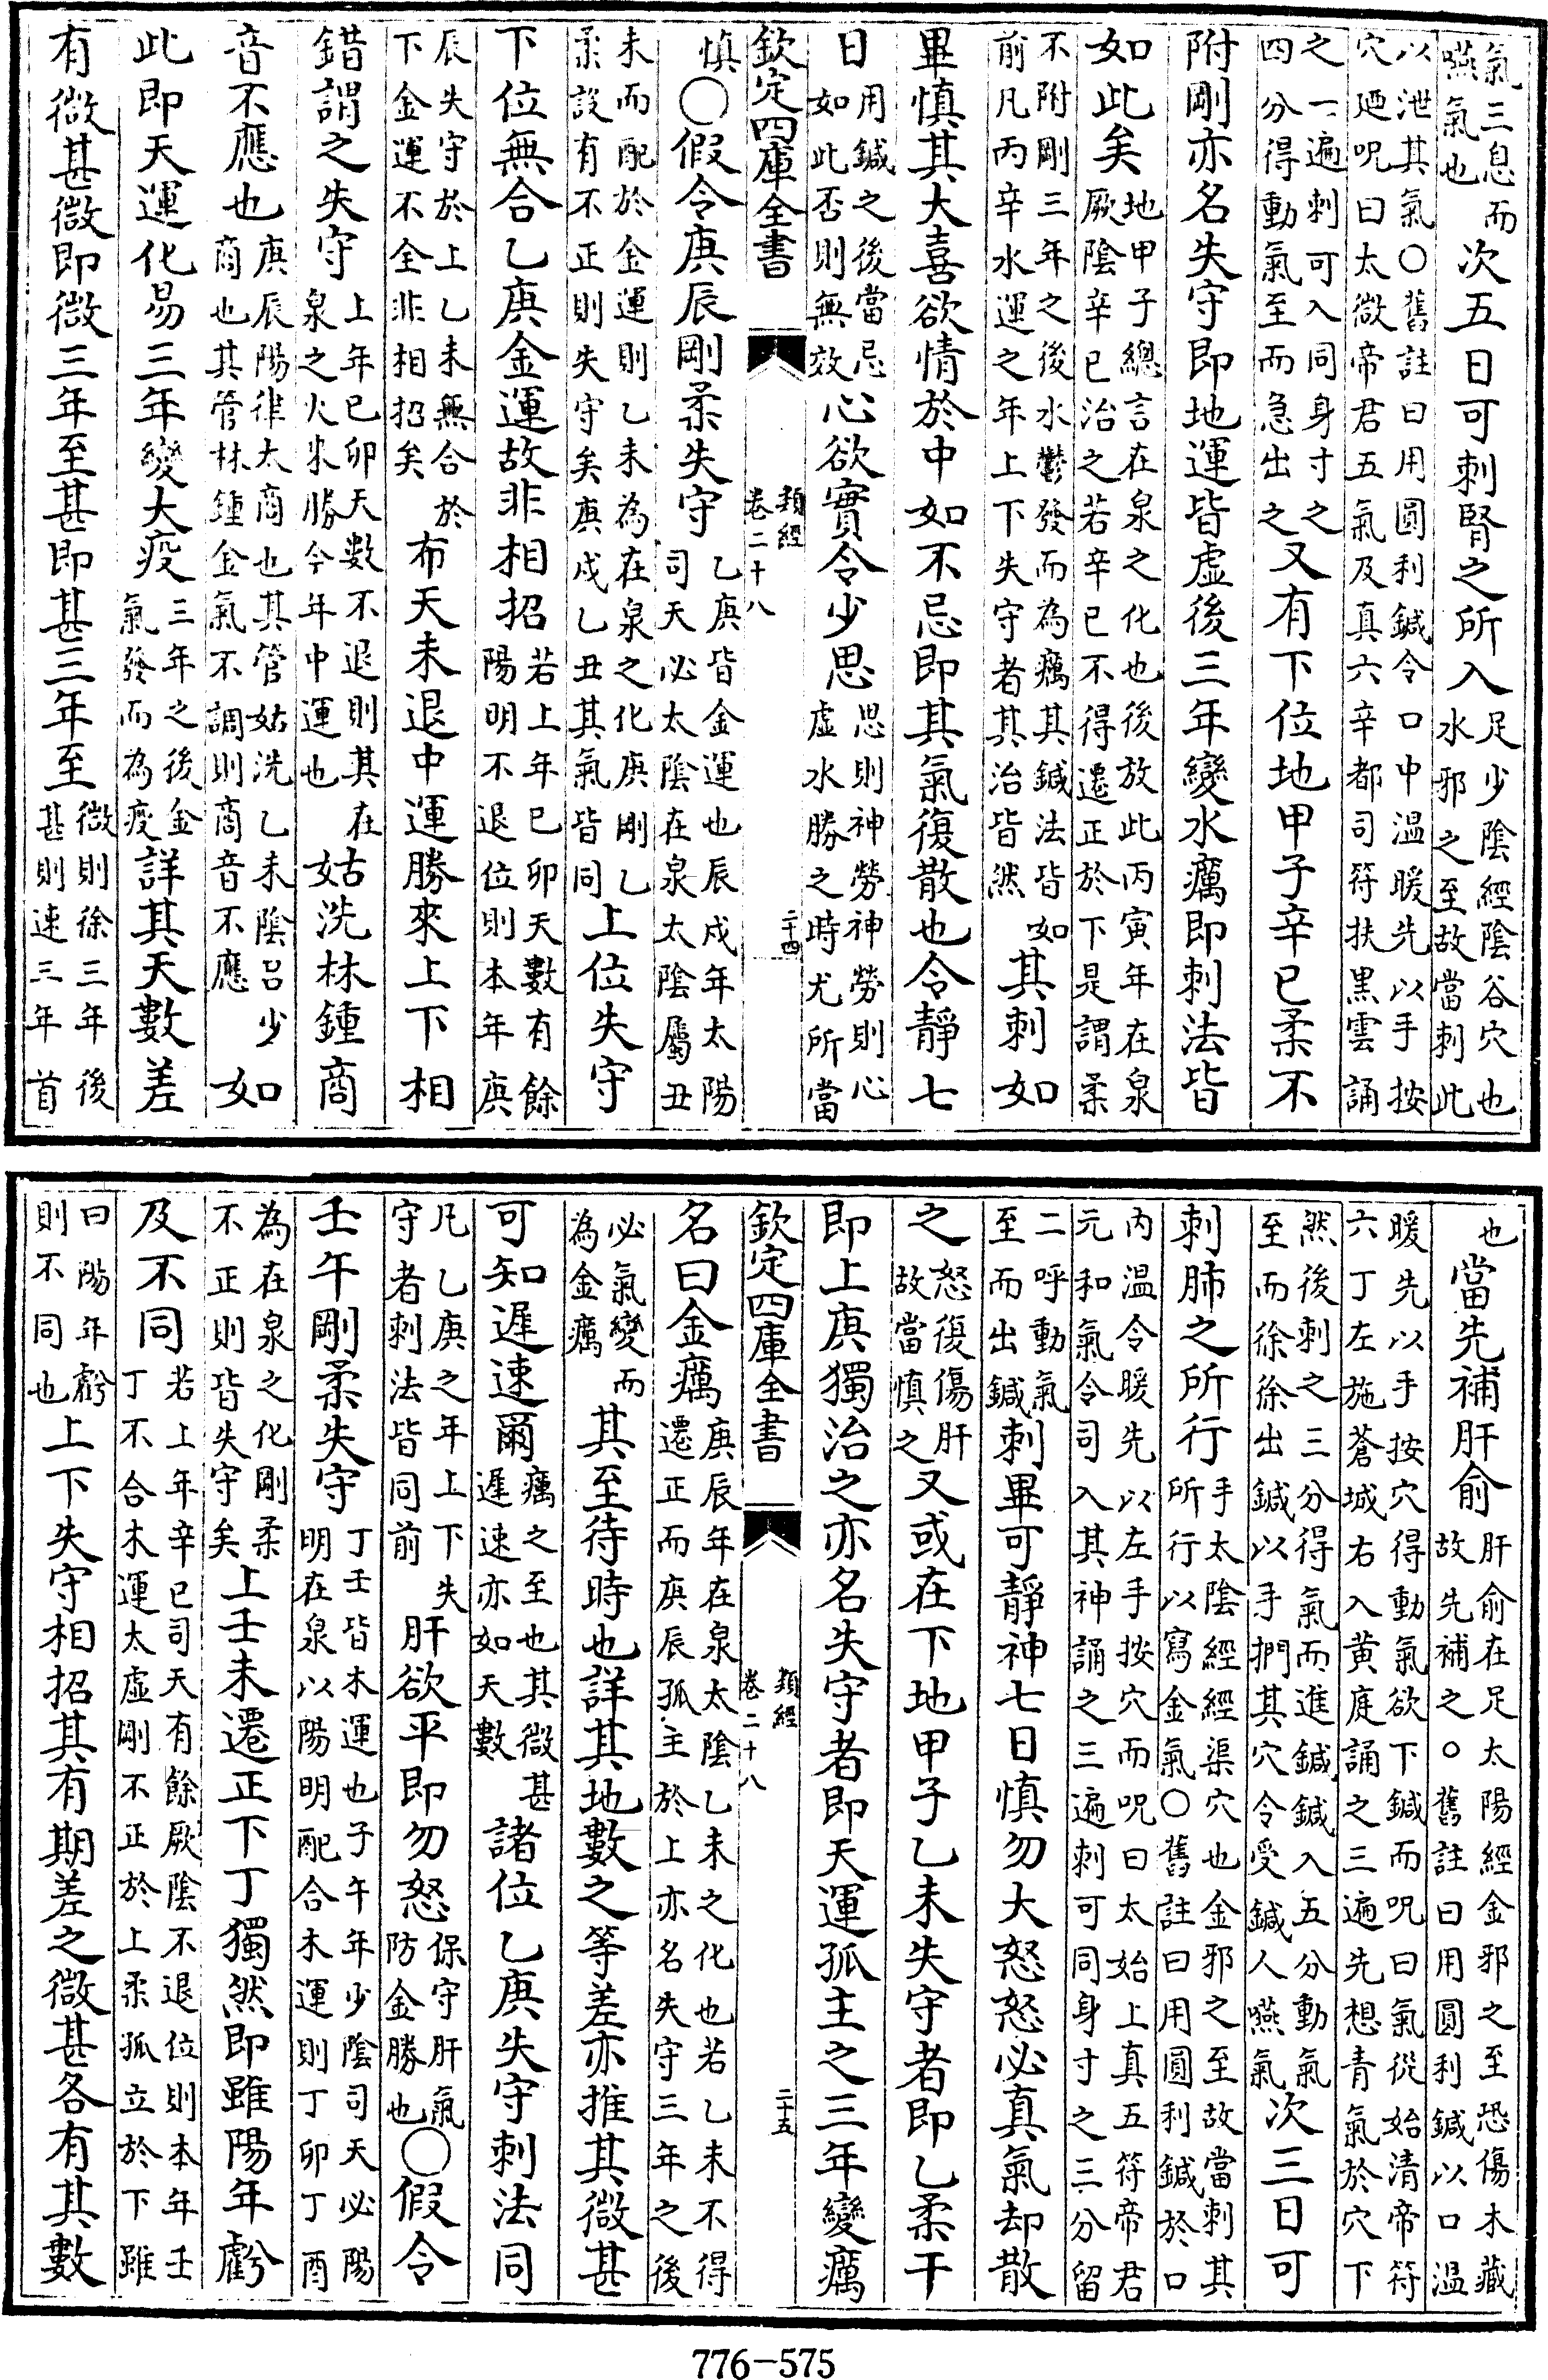 氣三息而嚥氣也次五日可刺腎之所入足少陰經陰谷穴也水邪之至故當刺此
以泄其氣○舊註曰用圓利鍼令口中温暖先以手按穴廼呪曰太微帝君五氣及真六辛都司符扶黑雲誦
之一遍刺可入同身寸之四分得動氣至而急出之又有下位地甲子辛巳柔不
附剛亦名失守即地運皆虛後三年變水癘即刺法皆
如此矣地甲子總言在泉之化也後放此丙寅年在泉厥陰辛巳治之若辛巳不得遷正於下是謂柔
不附剛三年之後水鬱發而為癘其鍼法皆如前凡丙辛水運之年上下失守者其治皆然其刺如
畢慎其大喜欲情於中如不忌即其氣復散也令靜七
日用鍼之後當忌如此否則無效心欲實令少思思則神勞神勞則心虛水勝之時尤所當
欽定四庫全書 類經 卷二十八 二十四
慎○假令庚辰剛柔失守乙庚皆金運也辰戌年太陽司天必太陰在泉太陰屬丑
未而配於金運則乙未為在泉之化庚剛乙柔設有不正則失守矣庚戌乙丑其氣皆同上位失守
下位無合乙庚金運故非相招若上年己卯天數有餘陽明不退位則本年庚
辰失守於上乙未無合於下金運不全非相招矣布天未退中運勝來上下相
錯謂之失守上年已卯天數不退則其在泉之火來勝今年中運也姑洗林鍾商
音不應也庚辰陽律太商也其管姑洗乙未陰呂少商也其管林鍾金氣不調則商音不應如
此即天運化易三年變大疫三年之後金氣發而為疫詳其天數差
有微甚微即微三年至甚即甚三年至微則徐三年後甚則速三年首
也當先補肝俞肝俞在足太陽經金邪之至恐傷木藏故先補之○舊註曰用圓利鍼以口温
暖先以手按穴得動氣欲下鍼而呪曰氣從始清帝符六丁左施蒼城右入黄庭誦之三遍先想青氣於穴下
然後刺之三分得氣而進鍼鍼入五分動氣至而徐徐出鍼以手捫其穴令受鍼人嚥氣次三日可
刺肺之所行手太陰經經渠穴也金邪之至故當刺其所行以寫金氣○舊註曰用圓利鍼於口
内温令暖先以左手按穴而呪曰太始上真五符帝君元和氣令司入其神誦之三遍刺可同身寸之三分留
二呼動氣至而出鍼刺畢可靜神七日慎勿大怒怒必真氣却散
之怒復傷肝故當慎之又或在下地甲子乙未失守者即乙柔干
即上庚獨治之亦名失守者即天運孤主之三年變癘
欽定四庫全書 類經 卷二十八 二十五
名曰金癘庚辰年在泉太陰乙未之化也若乙未不得遷正而庚辰孤主於上亦名失守三年之後
必氣變而為金癘其至待時也詳其地數之等差亦推其微甚
可知遲速爾癘之至也其微甚遲速亦如天數諸位乙庚失守刺法同
凡乙庚之年上下失守者刺法皆同前肝欲平即勿怒保守肝氣防金勝也○假令
壬午剛柔失守丁壬皆木運也子午年少陰司天必陽明在泉以陽明配合木運則丁卯丁酉
為在泉之化剛柔不正則皆失守矣上壬未遷正下丁獨然即雖陽年虧
及不同若上年辛巳司天有餘厥陰不退位則本年壬丁不合木運太虛剛不正於上柔孤立於下雖
曰陽年虧則不同也上下失守相招其有期差之微甚各有其數
776-575